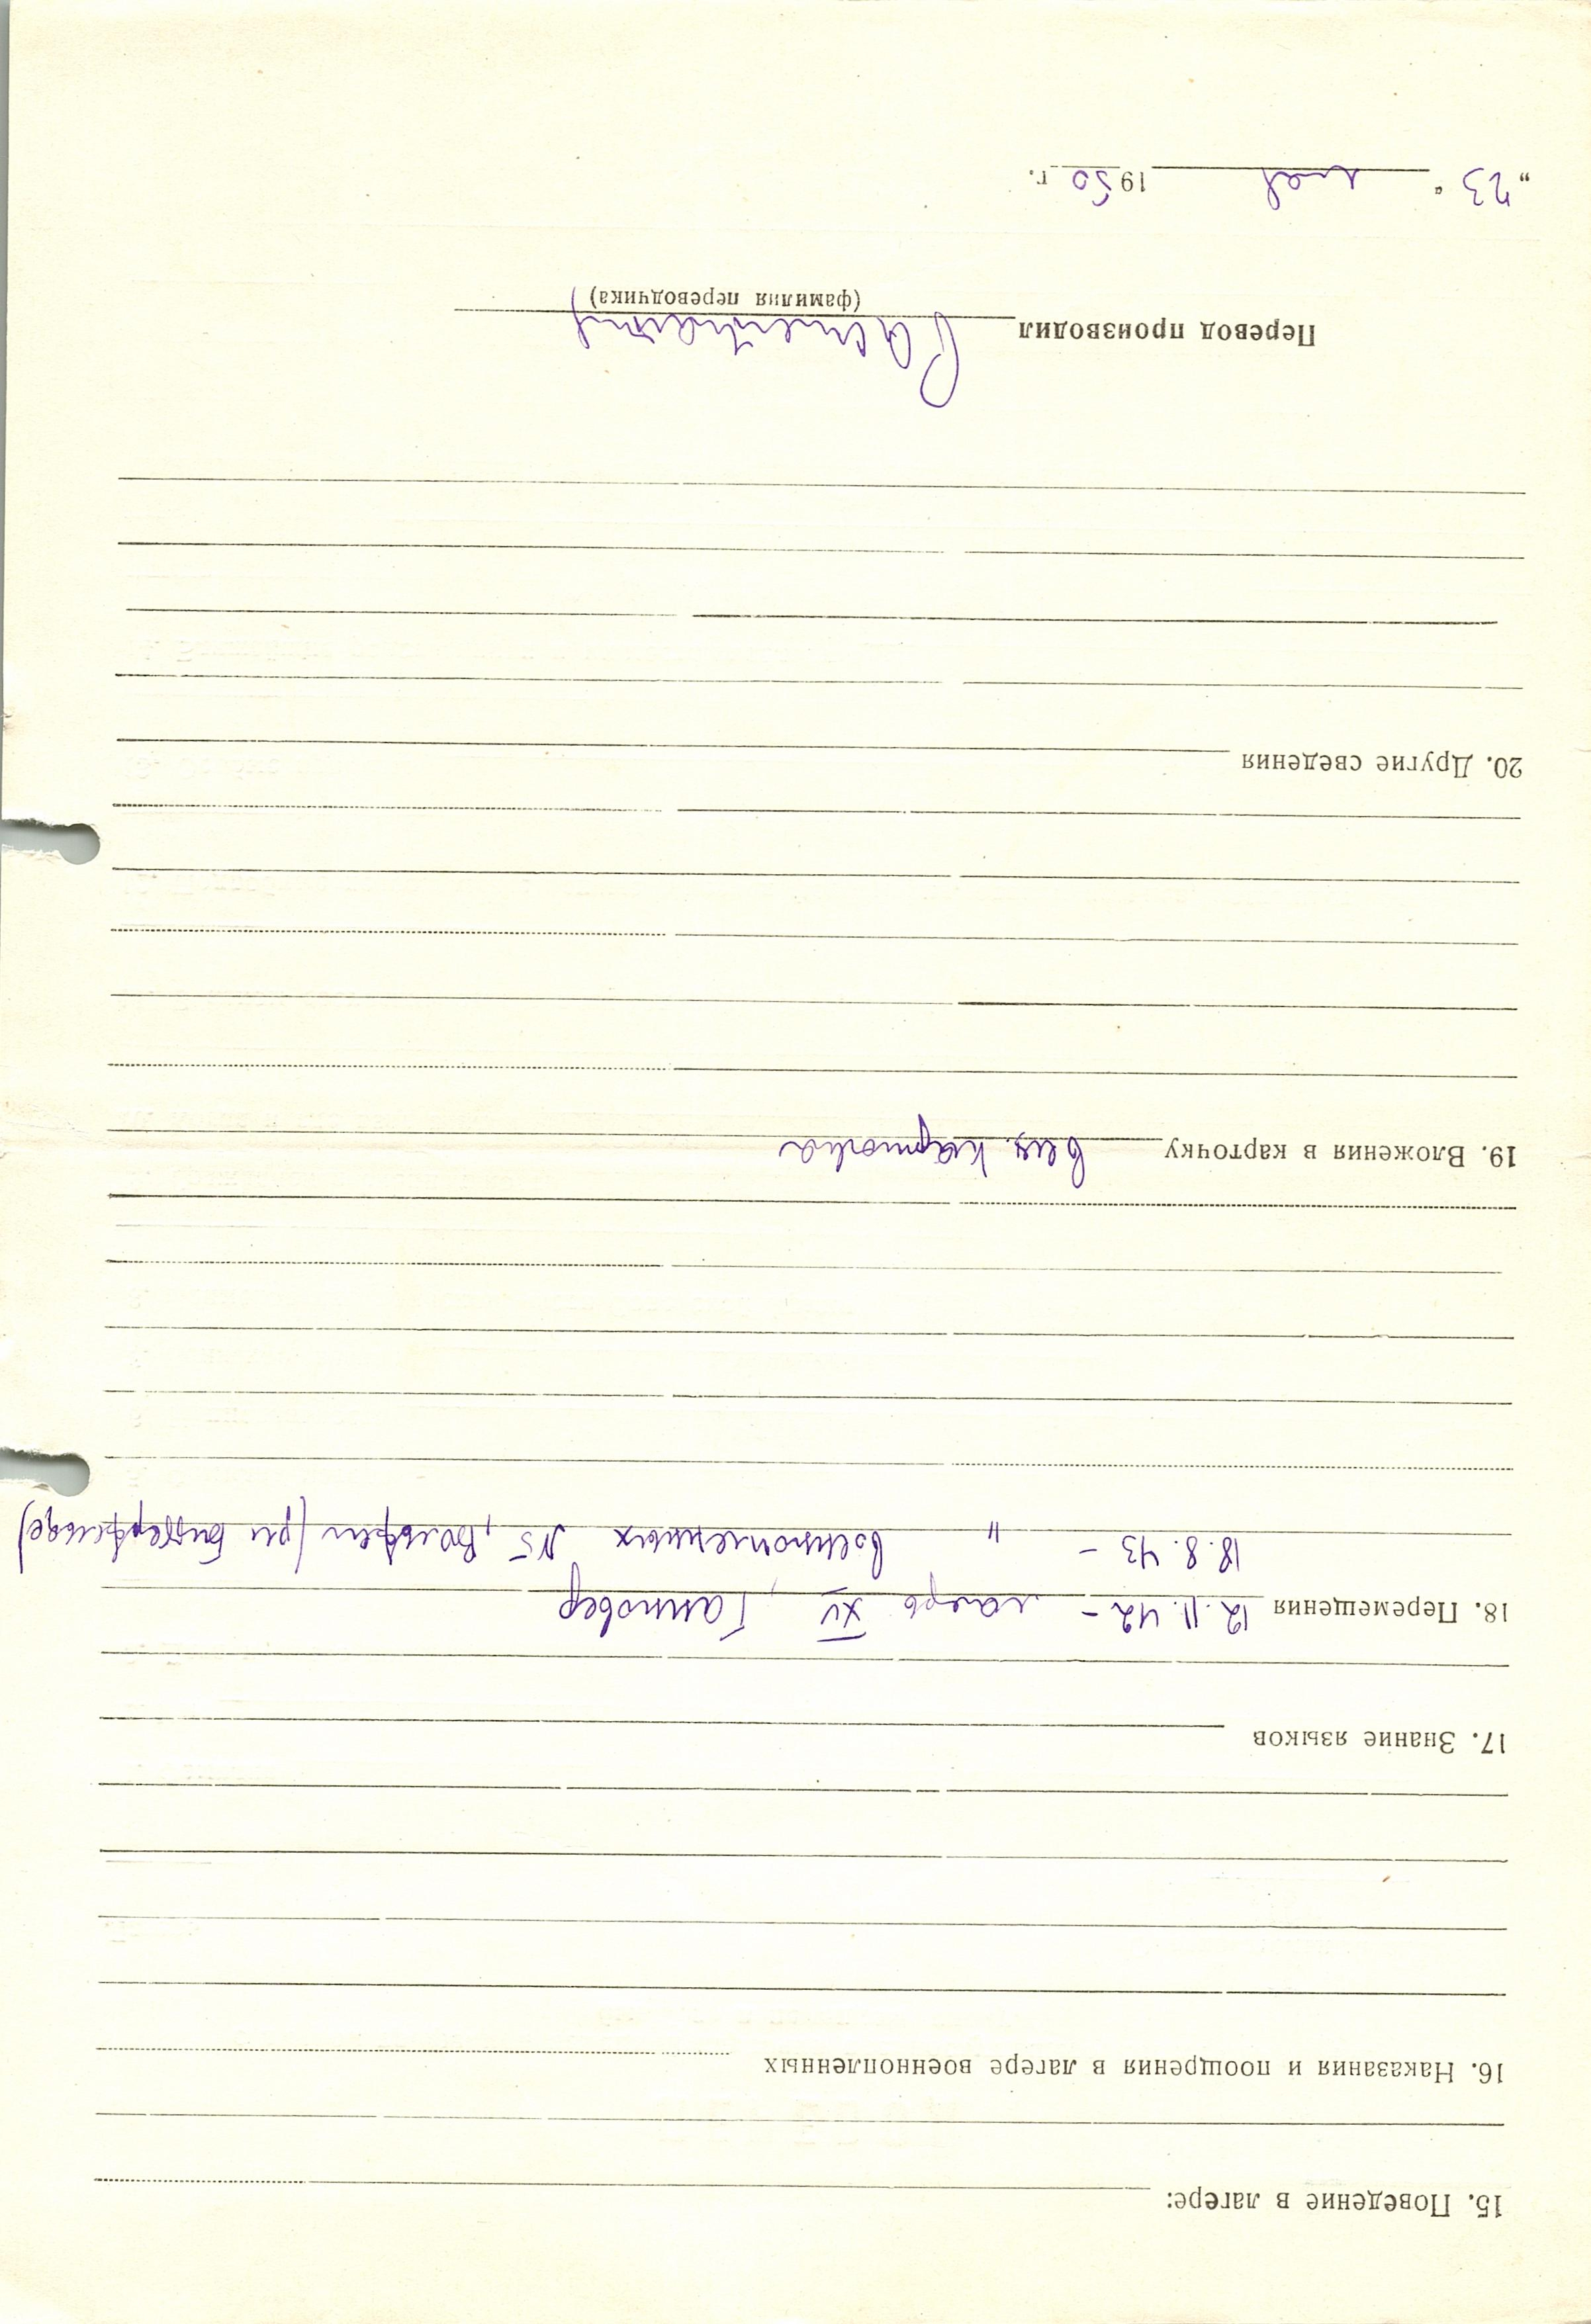 15. Поведение в лагере:
16. Наказания и поощрения в лагере военнопленных
17. Знание языков
18. Перемещения 12.11.42 – лагерь XI, Ганновер
18.8.43 – " военнопленных №5, Вольфен (при Биттерфельде)
19. Вложения в карточку вещ. карточка
20. Другие сведения
Перевод производил
(фамилия переводчика)
„23“ мая 1950 г.